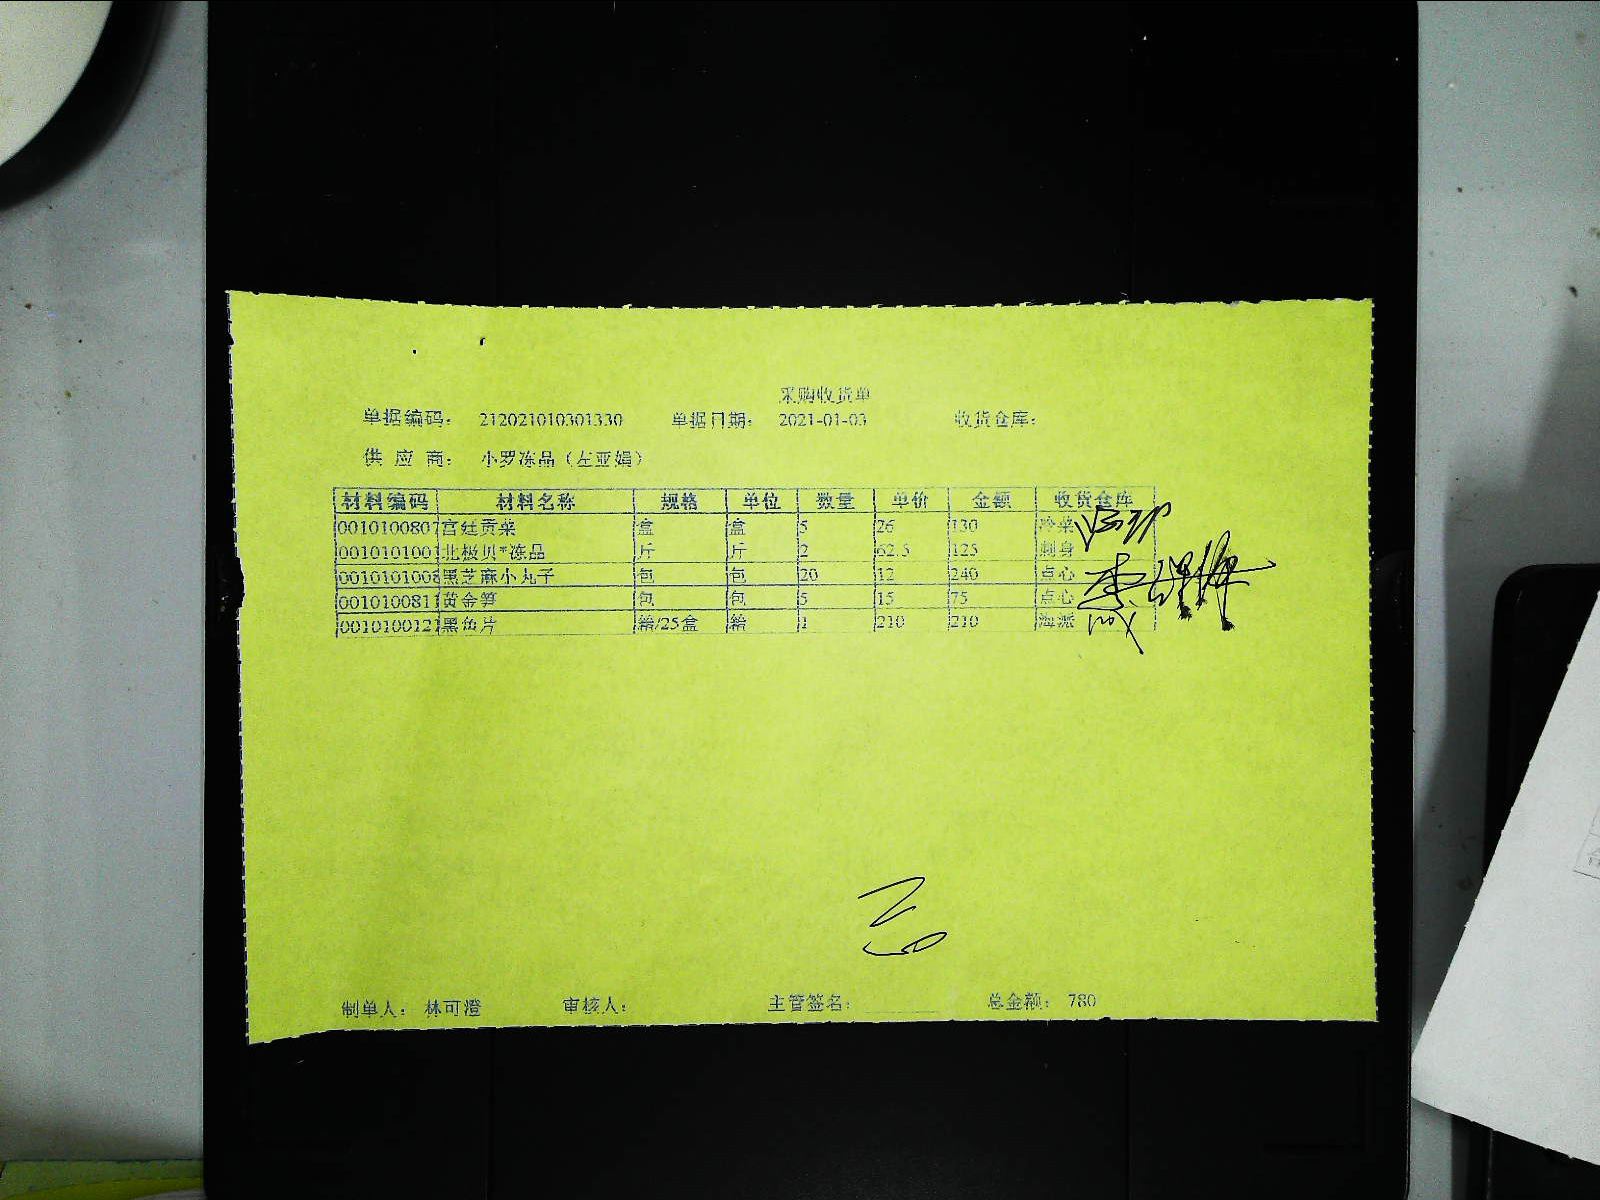 采购收货单
单据编码： 212021010301330 单据日期： 2021-01-03 收货仓库：
供 应 商： 小罗冻品（左亚娟）
材料编码 材料名称 规格 单位 数量 单价 金额 收货仓库
0010100807 宫廷贡菜 盒 盒 5 26 130 冷菜
0010101001 北极贝*冻品 斤 斤 2 62.5 125 刺身
0010101008 黑芝麻小丸子 包 包 20 12 240 点心
0010100811 黄金笋 包 包 5 15 75 点心
0010100121 黑鱼片 箱/25盒 箱 1 210 210 海派
制单人： 林可澄 审核人： 主管签名： 总金额： 780